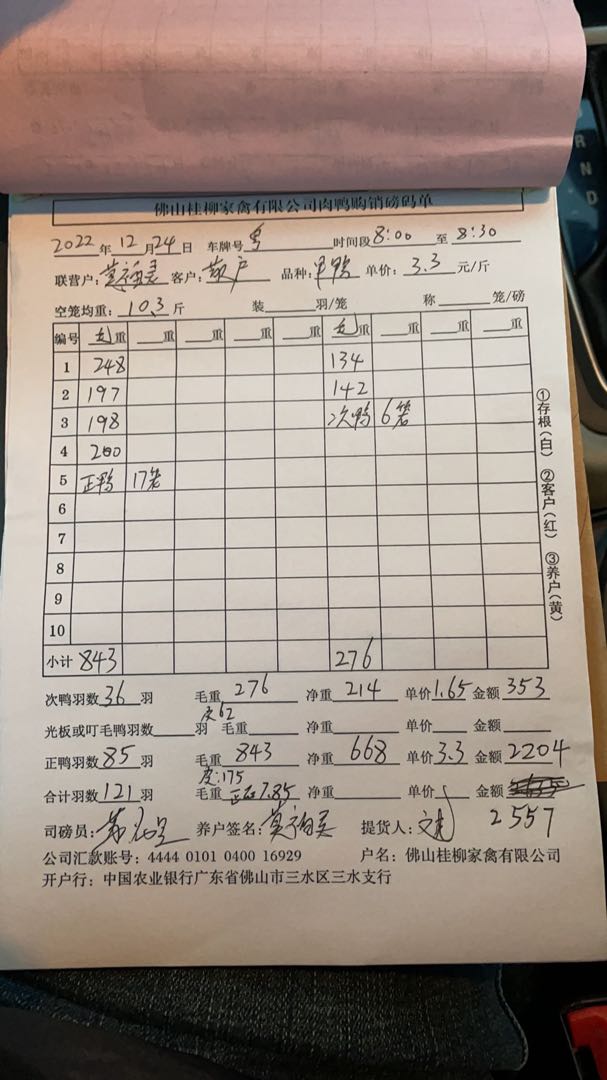 佛山桂柳家禽有限公司肉鸭购销磅码单
2022年12月24日 车牌号 时间段8:00至8:30
联营户: 客户: 品种: 单价:3.3元/斤
空笼均重:10.3斤 装 羽/笼 称 笼/磅
编号 毛重 重 重 重 重 毛重 重 重 重
1 248 134
2 197 142
3 198 次鸭 6笼
4 200
5 正鸭 17笼
6
7
8
9
10
小计 843 276
次鸭羽数36羽 毛重276 净重214 单价1.65 金额353
皮62
光板或叮毛鸭羽数 羽 毛重 净重 单价 金额
正鸭羽数85羽 毛重843 净重668 单价3.3 金额2204
皮:175
合计羽数121羽 毛重 7.85 净重 单价 金额
司磅员: 养户签名: 提货人: 2557
公司汇款账号: 4444 0101 0400 16929 户名: 佛山桂柳家禽有限公司
开户行: 中国农业银行广东省佛山市三水区三水支行
①存根(白) ②客户(红) ③养户(黄)